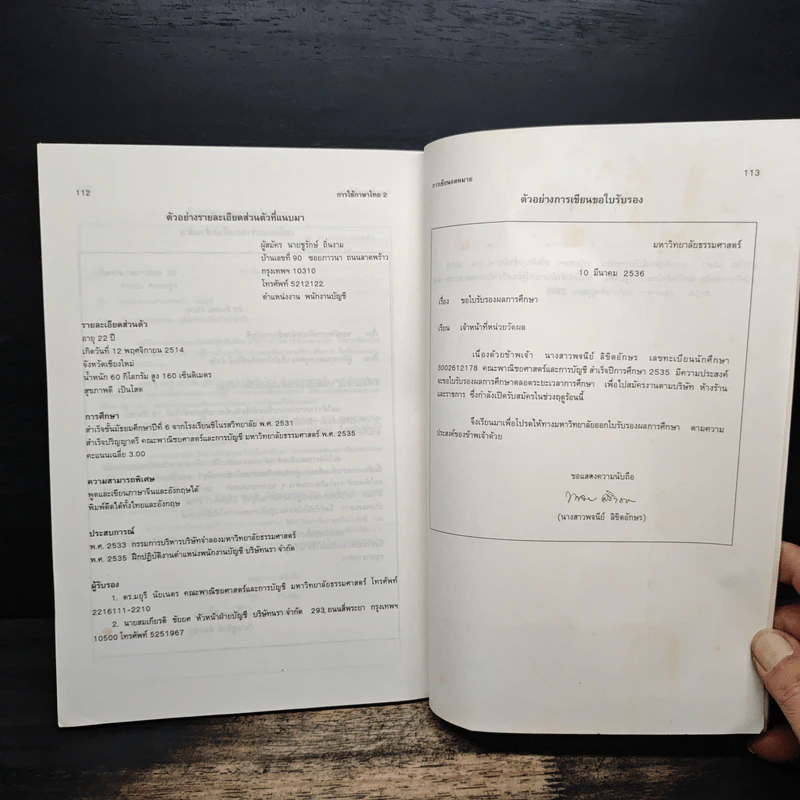 112
การใช้ภาษาไทย 2
ตัวอย่างรายละเอียดส่วนตัวที่แนบมา
ผู้สมัคร นายชูรักษ์ ถิ่นงาม
บ้านเลขที่ 90 ซอยภาวนา ถนนลาดพร้าว
กรุงเทพฯ 10310
โทรศัพท์ 5212122
ตำแหน่งงาน พนักงานบัญชี
รายละเอียดส่วนตัว
อายุ 22 ปี
เกิดวันที่ 12 พฤศจิกายน 2514
จังหวัดเชียงใหม่
น้ำหนัก 60 กิโลกรัม สูง 160 เซ็นติเมตร
สุขภาพดี เป็นโสด
การศึกษา
สำเร็จชั้นมัธยมศึกษาปีที่ 6 จากโรงเรียนชิโนรสวิทยาลัย พ.ศ. 2531
สำเร็จปริญญาตรี คณะพาณิชยศาสตร์และการบัญชี มหาวิทยาลัยธรรมศาสตร์ พ.ศ. 2535
คะแนนเฉลี่ย 3.00
ความสามารถพิเศษ
พูดและเขียนภาษาจีนและอังกฤษได้
พิมพ์ดีดได้ทั้งไทยและอังกฤษ
ประสบการณ์
พ.ศ. 2533 กรรมการบริหารบริษัทจำลองมหาวิทยาลัยธรรมศาสตร์
พ.ศ. 2535 ฝึกปฏิบัติงานตำแหน่งพนักงานบัญชี บริษัทนรา จำกัด
ผู้รับรอง
1. ดร.มยุรี นัยเนตร คณะพาณิชยศาสตร์และการบัญชี มหาวิทยาลัยธรรมศาสตร์ โทรศัพท์
2216111-2210
2. นายสมเกียรติ ชัยยศ หัวหน้าฝ่ายบัญชี บริษัทนรา จำกัด 293 ถนนสี่พระยา กรุงเทพฯ
10500 โทรศัพท์ 5251967
การเขียนจดหมาย
113
ตัวอย่างการเขียนขอใบรับรอง
มหาวิทยาลัยธรรมศาสตร์
10 มีนาคม 2536
เรื่อง ขอใบรับรองผลการศึกษา
เรียน เจ้าหน้าที่หน่วยวัดผล
เนื่องด้วยข้าพเจ้า นางสาวพจนีย์ ลิขิตอักษร เลขทะเบียนนักศึกษา
3002612178 คณะพาณิชยศาสตร์และการบัญชี สำเร็จปีการศึกษา 2535 มีความประสงค์
จะขอใบรับรองผลการศึกษาตลอดระยะเวลาการศึกษา เพื่อไปสมัครงานตามบริษัท ห้างร้าน
และราชการ ซึ่งกำลังเปิดรับสมัครในช่วงฤดูร้อนนี้
จึงเรียนมาเพื่อโปรดให้ทางมหาวิทยาลัยออกใบรับรองผลการศึกษา ตามความ
ประสงค์ของข้าพเจ้าด้วย
ขอแสดงความนับถือ
(นางสาวพจนีย์ ลิขิตอักษร)